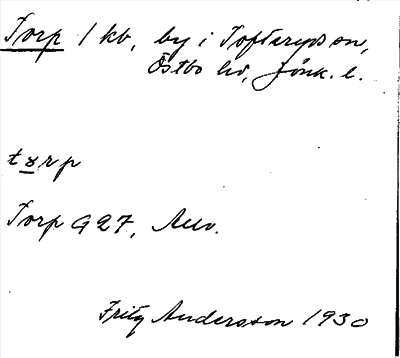 Torp 1 kb, by i Tofteryds sn,
Östbo hd, Jönk. l.
tɤrp
Torp G 27, Allv.
Fritz Andersson 1930